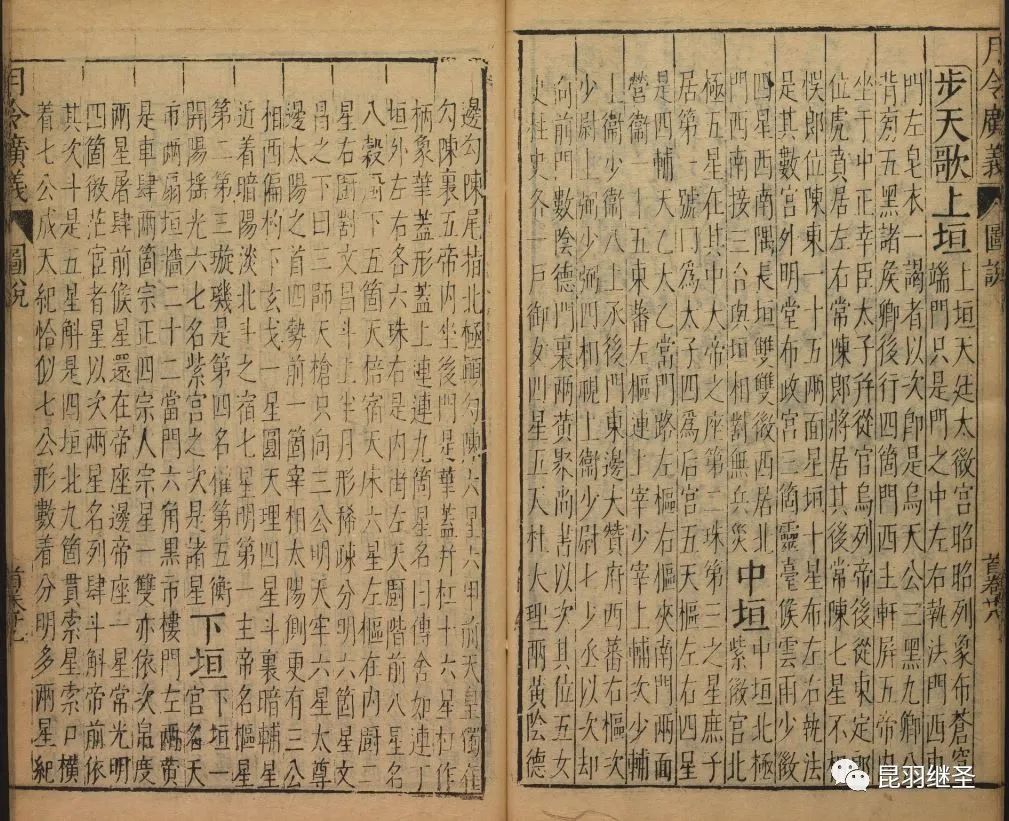 月令廣義 圖說 首卷廿六
步天歌上垣
上垣天廷太微宮昭昭列象布蒼穹
端門只是門之中左右執法門西東
門左皂衣一謁者以次即是烏天公三黑九卿公
背旁五黑諸侯卿後行四箇門西主軒屏五帝內
坐于中正幸臣太子并從官烏列帝後從東定郎
位虎賁居左右常陳郎將居其後常陳七星不相
悮郎位陳東一十五兩面星垣十星布左右執法
是其數宮外明堂布政宮三箇靈臺候雲雨少微
四星西南隅長垣雙雙後西居北
門西南接三台與垣相對無兵災
中垣
中垣北極
紫微宮北
極五星在其中大帝之座第二珠第三之星庶子
居第一號曰為太子四為后宮五天樞左右四星
是四輔天乙太乙當門路左樞右樞夾南門兩面
營衛一十五東蕃左樞連上宰少宰上輔次少輔
上衛少衛八上丞後門東邊大贊府西蕃右樞次
少尉上卿少弼四相視上衛少尉七少丞以次却
向前門數陰德門裏兩黃聚尚書以次其位五女
史柱史各一戶御女四星五天柱大理兩黃陰德
邊勾陳尾指北極顛勾陳六星六甲前天皇獨在
勾陳裏五帝內坐後門是華蓋并杠十六星杠作
柄象華蓋形蓋上連連九箇星名曰傳舍如連丁
垣外左右各六珠右是內階左天廚階前八星名
八穀廚下五箇天棓宿天床六星左樞在內廚二
星右廚對文昌斗上半月形稀疎分明六箇星文
昌之下曰三師天槍只向三公明天牢六星太尊
邊太陽之首四勢前一箇宰相太陽側更有三公
相西偏杓下玄戈一星圓天理四星斗裏暗輔星
近着暗陽淡北斗之宿七星第一主帝名樞星
第二第三璇璣是第四名權第五衡
開陽搖光六七名紫宮之次是諸星
下垣
下垣一
宮名天
市兩扇垣墻二十二當門六角黑市樓門左兩黄
是車肆兩箇宗正四宗人宗星一雙亦依次帛度
兩星屠肆前候星還在帝座邊帝座一星常光明
四箇微茫宦者星以次兩星名列肆斗斛帝前依
其次斗是五星斛是四垣北九箇貫索星索口橫
着七公成天紀恰似七公形數着分明多兩星紀
月令廣義 圖說 首卷廿七
昆羽继圣